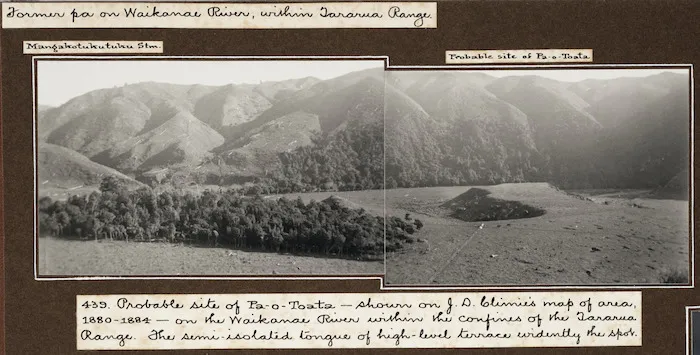 Former pa on Waikanae River, within Tararua Range.
Mangakotukutuku Stm.
Probable site of Pa-o-Toata
439. Probable site of Pa-o-Toata — shown on J. D. Climie's map of area,
1880-1884 — on the Waikanae River within the confines of the Tararua
Range. The semi-isolated tongue of high-level terrace evidently the spot.